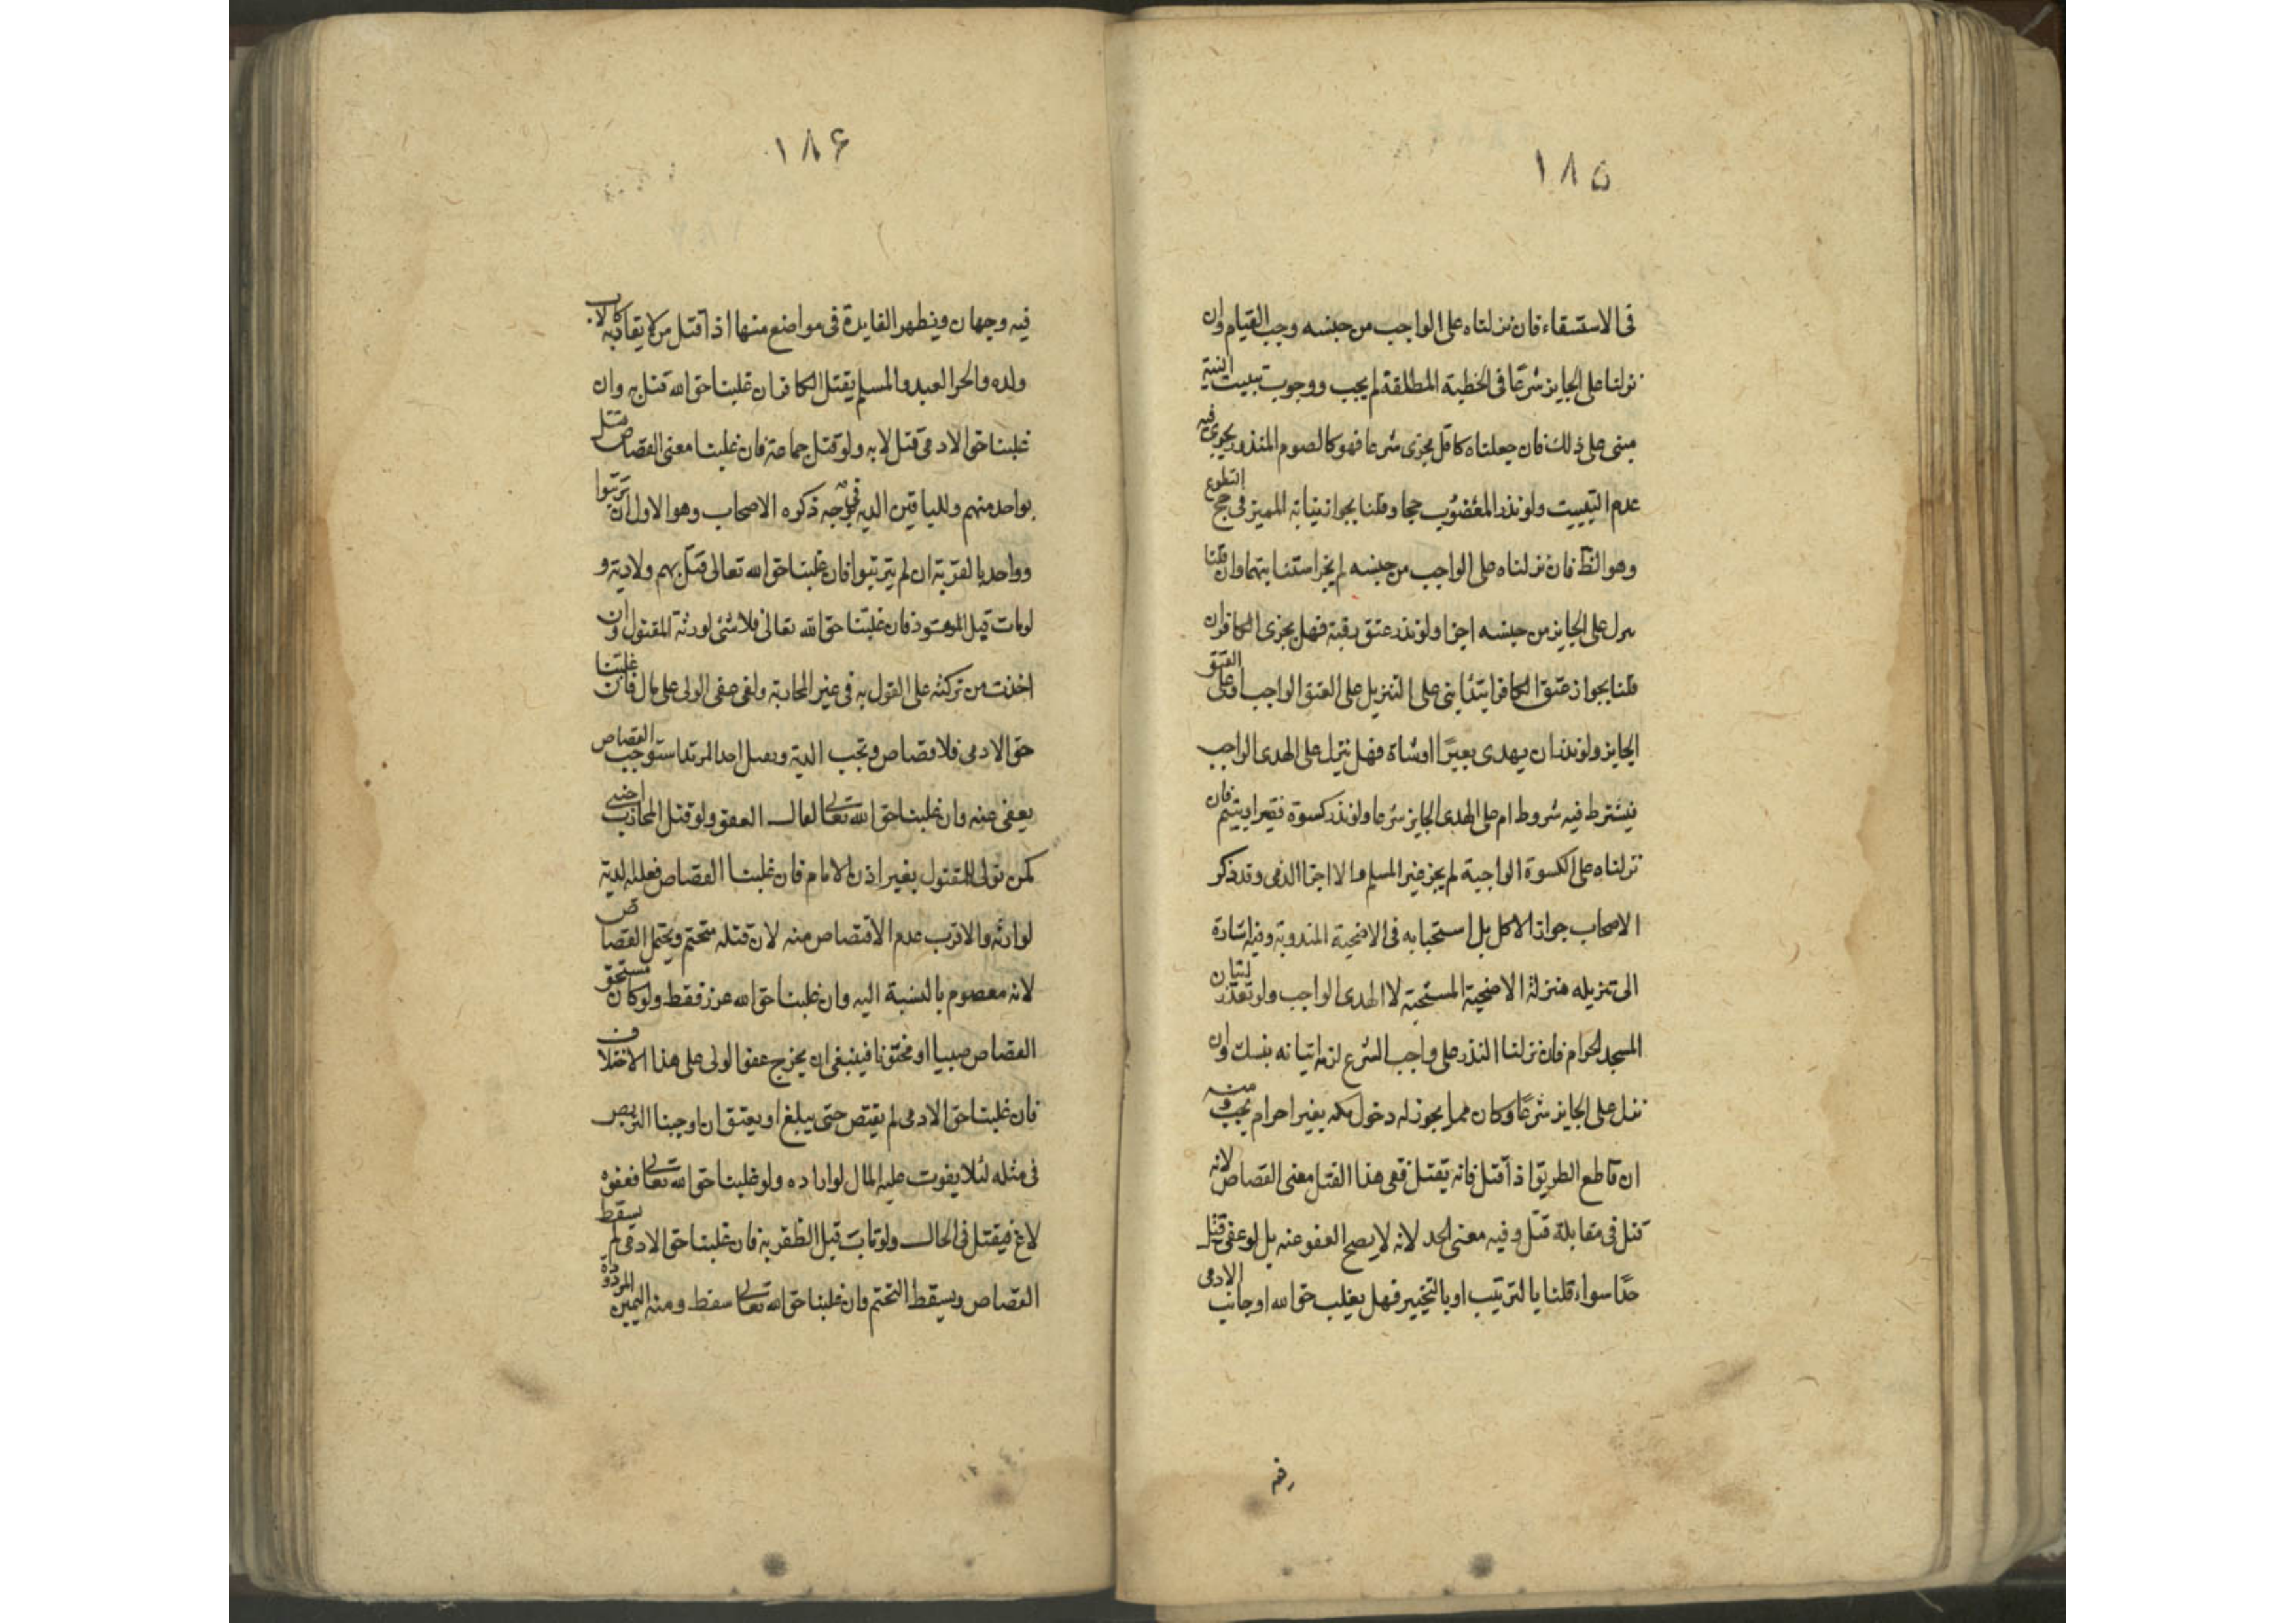 ١٨٥
فى الاستسقاء فان نزلناه على الواجب من جنسه وجب القيام وان
نزلنا على الجايز شرعا فى الخطبة المطلقة لم يجب ووجوب تبييت النية
مبنى على ذلك فان جعلناه كاقل مجزى شرعا فهو كالصوم المنذور يجرى فيه
عدم التبييت ولو نذر المعضوب حجا وقلنا بجواز نيابة المميز فى حج التطوع
وهو الظ فان نزلناه على الواجب من جنسه لم يجز استنابتهما وان قلنا
ىىرل على الجايز من جنسه اجزا ولو نذر عتق رقبة فهل يجزى الكافر ان
قلنا بجواز عتق الكافر ابتدا يبنى على التنزيل على العتق الواجب او على العتق
الجايز ولو نذر ان يهدى بعيرا او شاة فهل ينزل على الهدى الواجب
فيشترط فيه شروطه ام على الهدى الجايز شرعا ولو نذر كسوة فقير او يتيم فان
نزلناه على الكسوة الواجبة لم يجز غير المسلم والا اجزا الذمى وقد ذكر
الاصحاب جواز الاكل بل استحبابه فى الاضحية المندوبة وفيه اشارة
الى تنزيله منزلة الاضحية المستحبة لا الهدى الواجب ولو نذر اتيان
المسجد الحرام فان نزلنا النذر على واجب الشرع لزمه اتيانه بنسك وان
نزل على الجايز شرعا وكان ممن يجوز له دخول مكه بغير احرام لم يجب ومنه
ان قاطع الطريق اذا قتل فانه يقتل ففى هذا القتل معنى القصاص لانه
قتل فى مقابلة قتل وفيه معنى الحد لانه لا يصح العفو عنه بل لو عفى قتل
حدا سواء قلنا بالترتيب او بالتخيير فهل يغلب حق الله او جانب الادمى
فيه
١٨۶
فيه وجهان ويظهر الفايدة فى مواضع منها اذا قتل من لا يقاد به كالاب
ولده والحر العبد والمسلم يقتل الكافر ان غلبنا حق الله قتل به وان
غلبنا حق الادمى قتل لا به ولو قتل جماعة فان غلبنا معنى القصاص قتل
بواحد منهم وللباقين الديه فى وجه ذكره الاصحاب وهو الاول ان ترتبوا
وواحد بالقرعة ان لم يترتبوا فان غلبنا حق الله تعالى قتل بهم ولا دية و
لو مات قبل القود فان غلبنا حق الله تعالى فلا شئ لورثة المقتول وان
اخذت من تركته على القول به فى غير المحاربة ولو عفى الولى على مال فان غلبنا
حق الادمى فلا قصاص وتجب الدية ويقتل حدا كمرتد استوجب القصاص
يعفى عنه وان غلبنا حق الله تعالى لغا العفو ولو قتل المحارب اجنبى
كمن تولى المقتول بغير اذن الامام فان غلبنا القصاص فعليه الدية
لوارثه والاقرب عدم الاقتصاص منه لان قتله متحتم ويحتمل القصاص
لانه معصوم بالنسبة اليه وان غلبنا حق الله عزر فقط ولو كان مستحق
القصاص صبيا او مجنونا فينبغى ان يخرج عفو الولى على هذا الاختلاف
فان غلبنا حق الادمى لم يقتص حتى يبلغ او يعتق ان اوجبنا التربص
فى مثله لئلا يفوت عليه المال لو اراده ولو غلبنا حق الله تعالى فعفوه
لاغ فيقتل فى الحال ولو تاب قبل الظفر به فان غلبنا حق الادمى لم يسقط
القصاص ويسقط التحتم وان غلبنا حق الله تعالى سقط ومنه اليمين المردودة